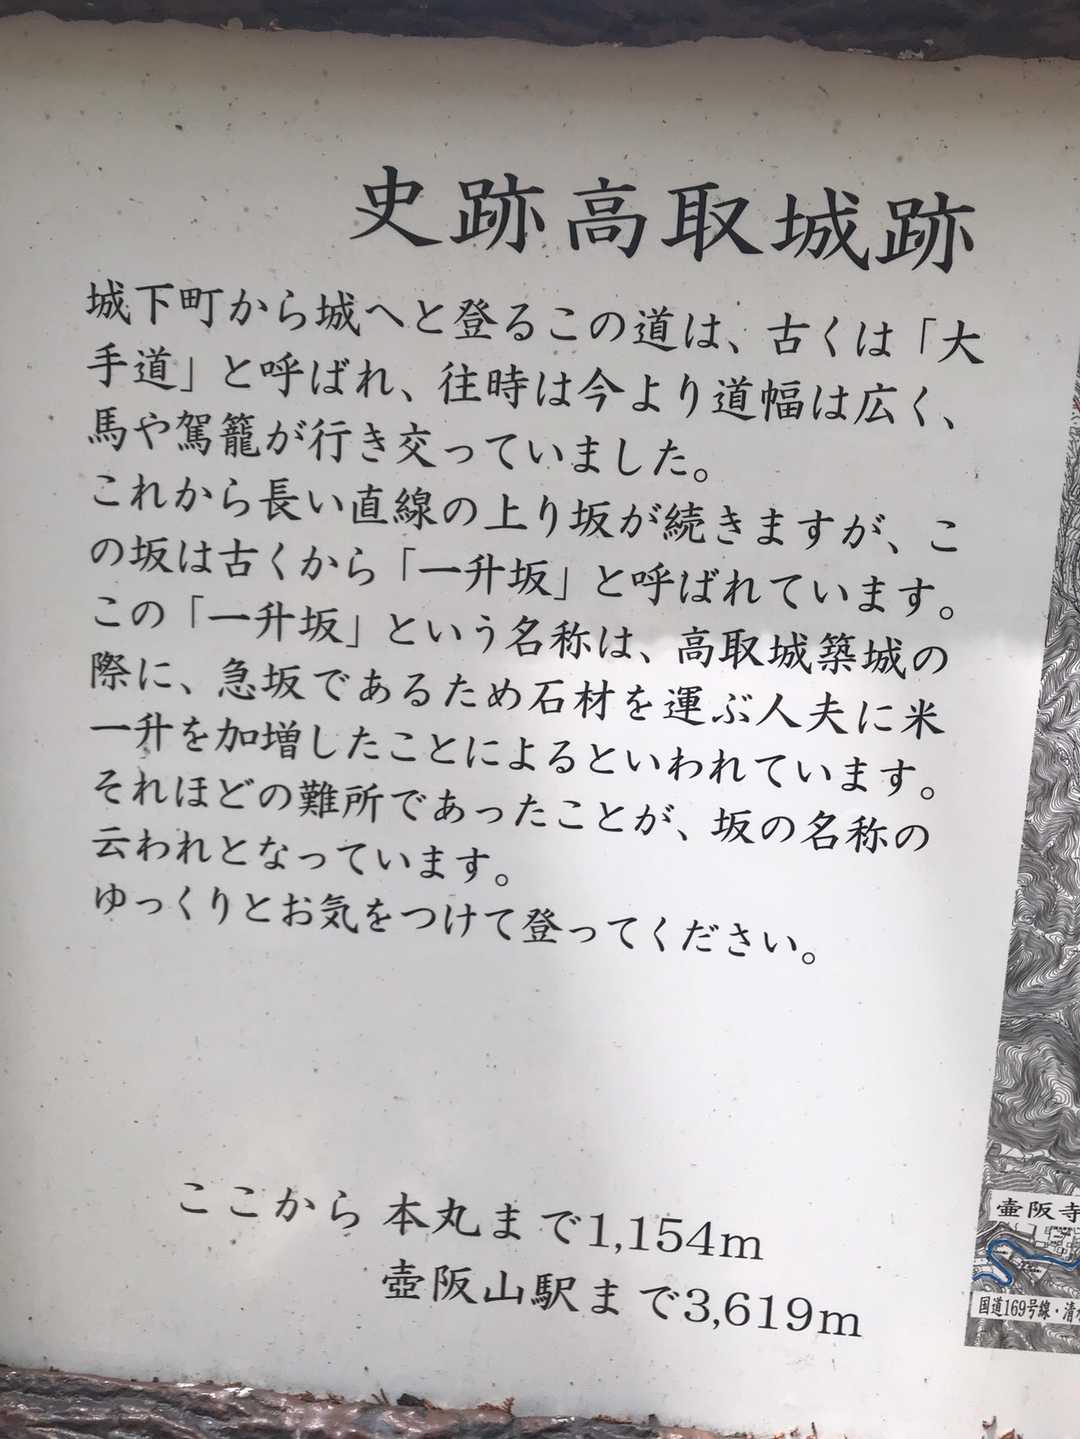 史跡高取城跡
城下町から城へと登るこの道は、古くは「大
手道」と呼ばれ、往時は今より道幅は広く、
馬や駕籠が行き交っていました。
これから長い直線の上り坂が続きますが、こ
の坂は古くから「一升坂」と呼ばれています。
この「一升坂」という名称は、高取城築城の
際に、急坂であるため石材を運ぶ人夫に米
一升を加増したことによるといわれています。
それほどの難所であったことが、坂の名称の
云われとなっています。
ゆっくりとお気をつけて登ってください。
ここから 本丸まで1,154m
壺阪山駅まで3,619m
壺阪寺
国道169号線・清水